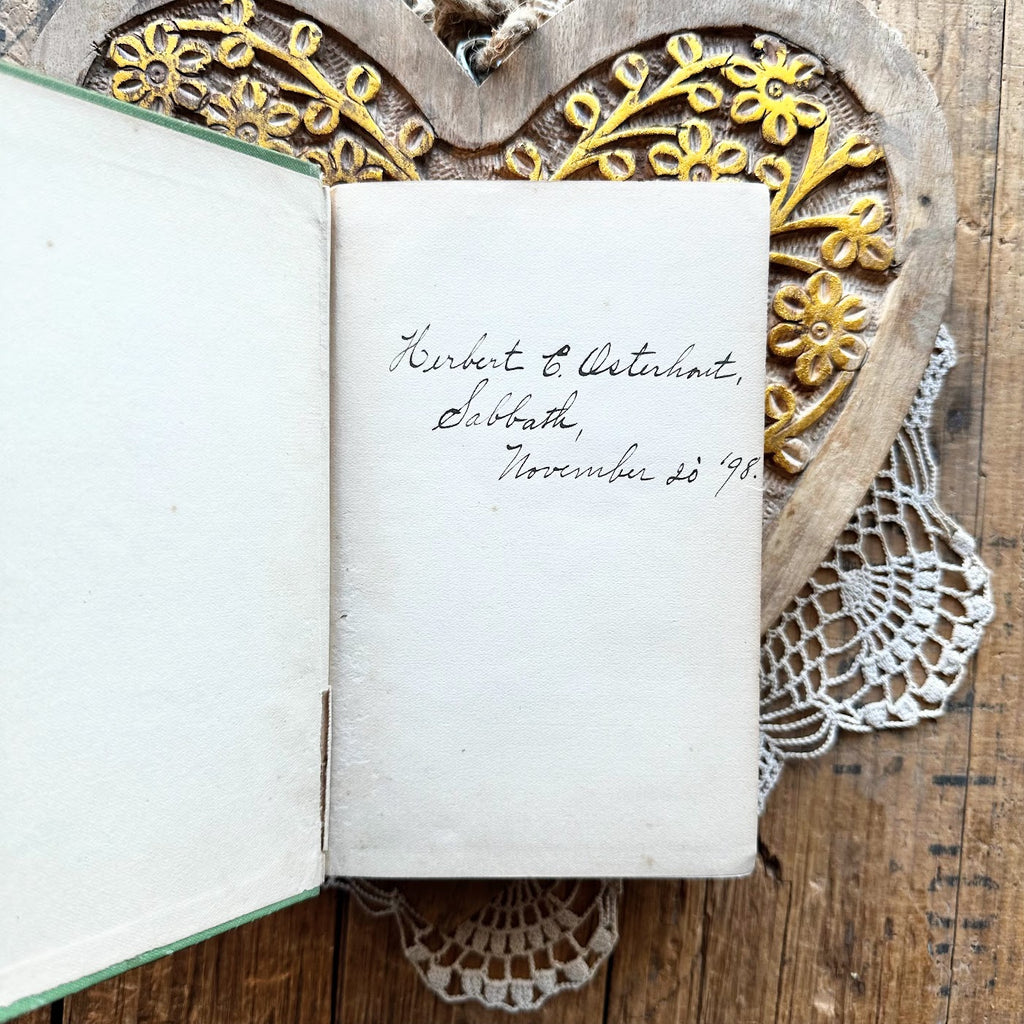 Herbert C. Osterhout,
Sabbath,
November 20 '98.